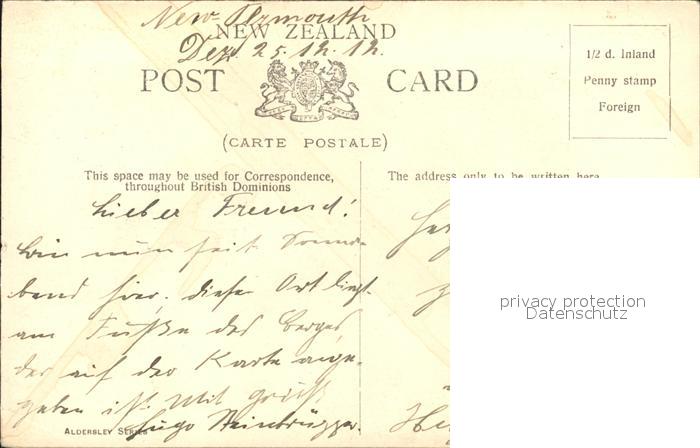 New Plymouth
NEW ZEALAND
Dez. 25.12.12.
POST CARD
(CARTE POSTALE)
1/2 d. Inland
Penny stamp
Foreign
This space may be used for Correspondence,
throughout British Dominions
The address only to be written here
Lieber Freund!
Bin nun seit Sonna-
bend hier. dieser Ort liegt
am Fuße des Berges,
der auf der Karte ange-
geben ist. Mit Gruß
Hugo Steinbrügger.
ALDERSLEY SERIES
privacy protection
Datenschutz